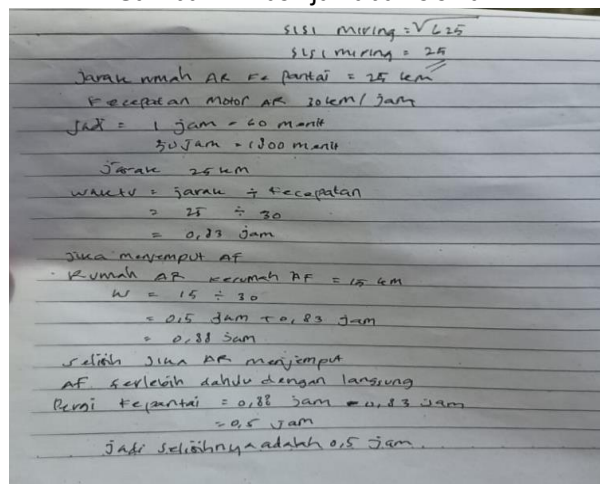 sisi miring = √625
sisi miring = 25
Jarak rumah AR ke pantai = 25 km
Kecepatan motor AR 30 km / jam
Jadi = 1 jam = 60 menit
30 jam = 1800 menit
Jarak 25 km
waktu = jarak ÷ kecepatan
= 25 ÷ 30
= 0,83 jam
Jika menjemput AF
Rumah AR kerumah AF = 15 km
W = 15 ÷ 30
= 0,5 jam + 0,83 jam
= 0,88 jam
selisih jika AR menjemput
AF terlebih dahulu dengan langsung
Pergi kepantai = 0,88 jam - 0,83 jam
= 0,5 jam
jadi selisihnya adalah 0,5 jam.